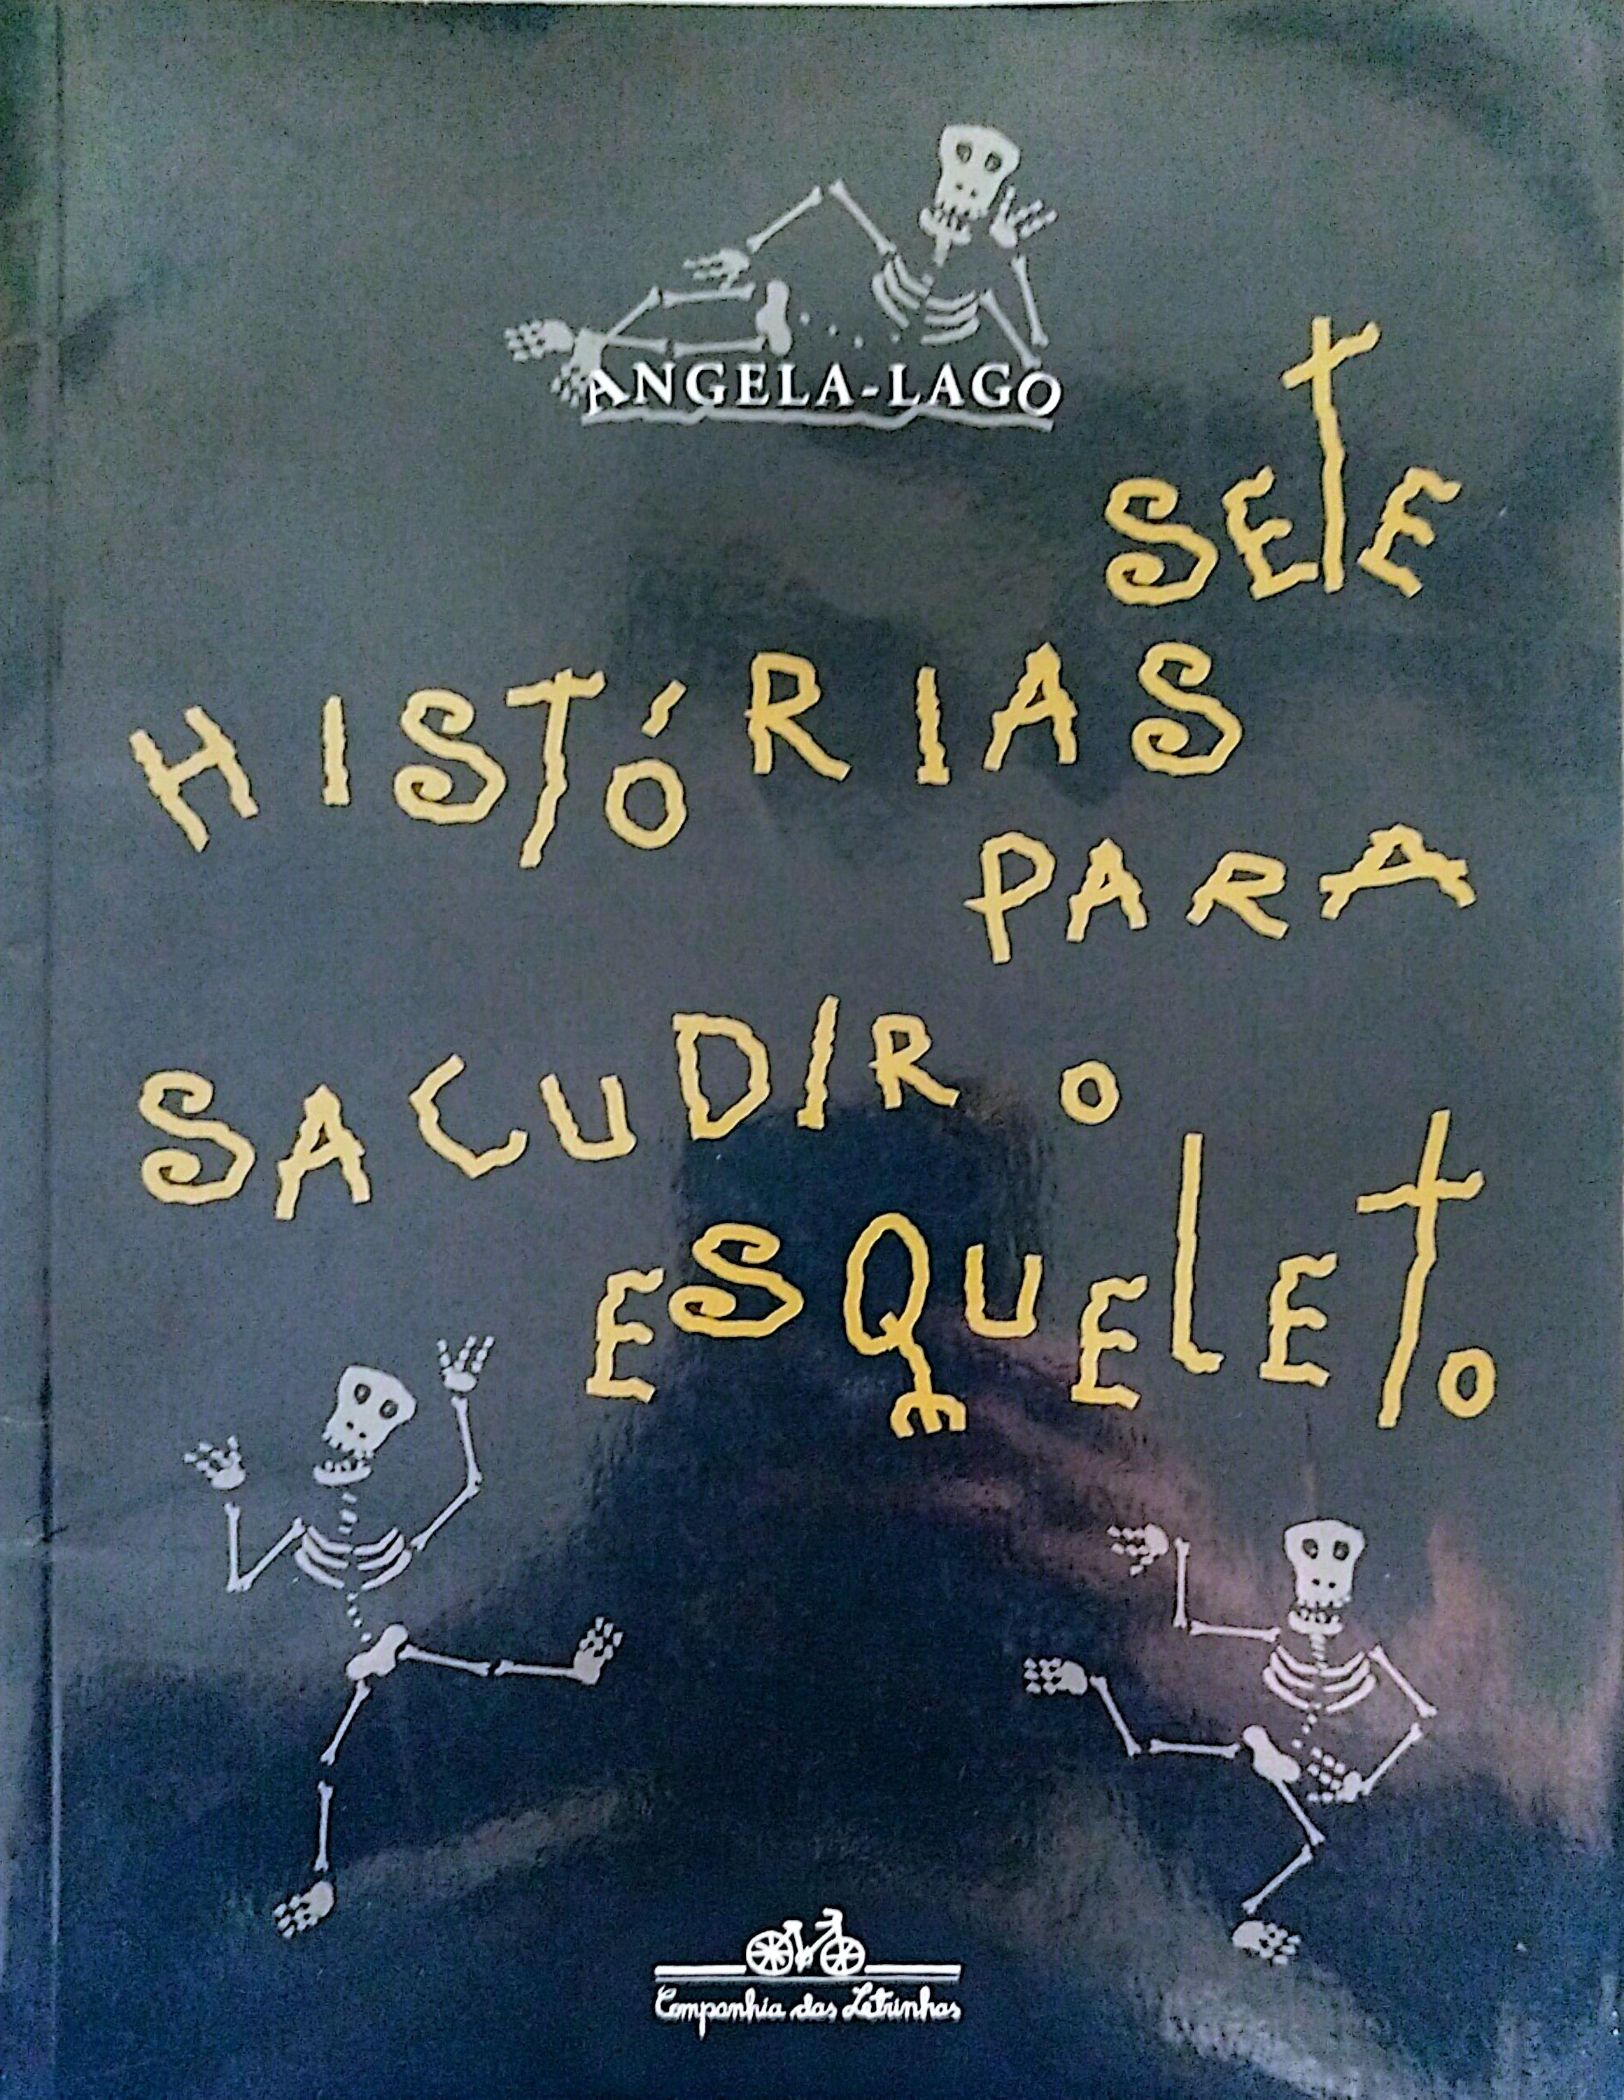 ANGELA-LAGO
SETE
HISTÓRIAS
PARA
SACUDIR O
ESQUELETO
Companhia das Letrinhas